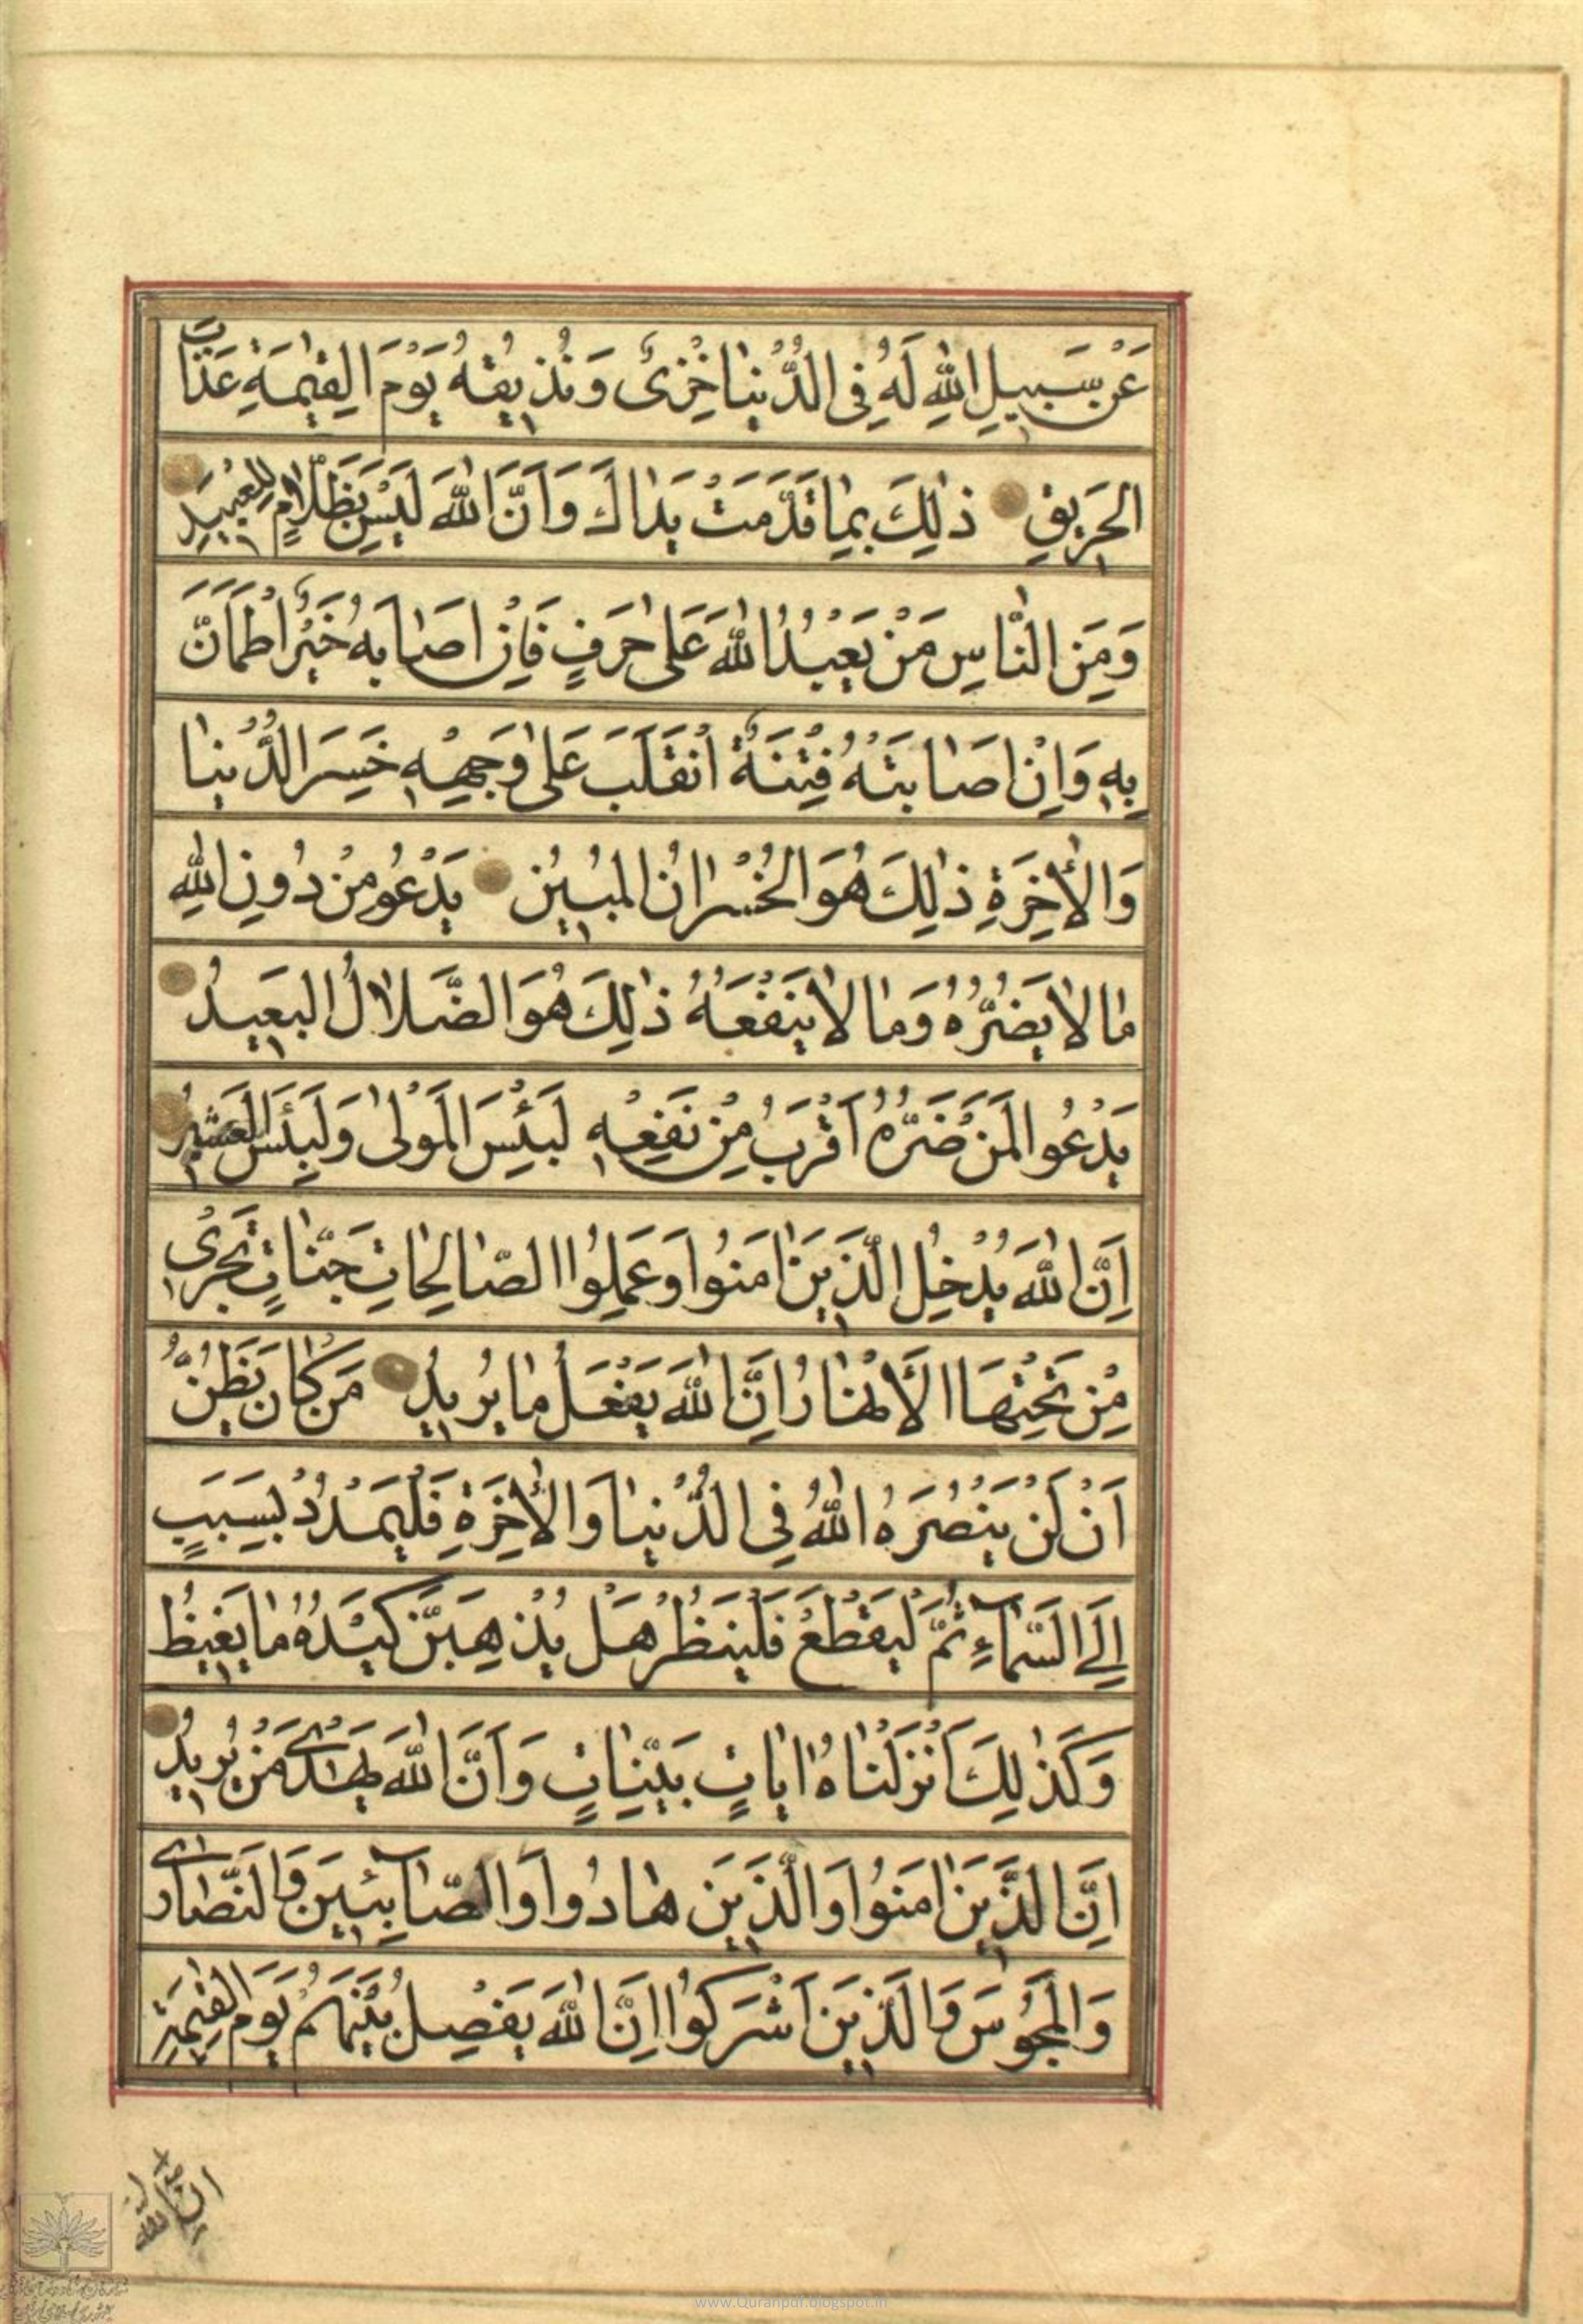 عَنْ سَبِيلِ اللهِ لَهُ فِى الدُّنْيٰا خِزْىٌ وَ نُذِيقُهُ يَوْمَ الْقِيٰمَةِ عَذٰابَ
الْحَرِيقِ ذٰلِكَ بِمٰا قَدَّمَتْ يَدٰاكَ وَ اَنَّ اللهَ لَيْسَ بِظَلّٰامٍ لِلْعَبِيدِ
وَ مِنَ النّٰاسِ مَنْ يَعْبُدُ اللهَ عَلىٰ حَرْفٍ فَاِنْ اَصٰابَهُ خَيْرٌ اطْمَاَنَّ
بِهِ وَ اِنْ اَصٰابَتْهُ فِتْنَةٌ انْقَلَبَ عَلىٰ وَجْهِهِ خَسِرَ الدُّنْيٰا
وَ الْأٰخِرَةِ ذٰلِكَ هُوَ الْخُسْرٰانُ الْمُبِينُ يَدْعُو مِنْ دُونِ اللهِ
مٰا لاٰ يَضُرُّهُ وَ مٰا لاٰ يَنْفَعُهُ ذٰلِكَ هُوَ الضَّلاٰلُ الْبَعِيدُ
يَدْعُوا لَمَنْ ضَرُّهُ اَقْرَبُ مِنْ نَفْعِهِ لَبِئْسَ الْمَوْلىٰ وَ لَبِئْسَ الْعَشِيرُ
اِنَّ اللهَ يُدْخِلُ الَّذِينَ اٰمَنُوا وَ عَمِلُوا الصّٰالِحٰاتِ جَنّٰاتٍ تَجْرِى
مِنْ تَحْتِهَا الْأَنْهٰارُ اِنَّ اللهَ يَفْعَلُ مٰا يُرِيدُ مَنْ كٰانَ يَظُنُّ
اَنْ لَنْ يَنْصُرَهُ اللهُ فِى الدُّنْيٰا وَ الْأٰخِرَةِ فَلْيَمْدُدْ بِسَبَبٍ
اِلَى السَّمٰاءِ ثُمَّ لْيَقْطَعْ فَلْيَنْظُرْ هَلْ يُذْهِبَنَّ كَيْدُهُ مٰا يَغِيظُ
وَ كَذٰلِكَ اَنْزَلْنٰاهُ اٰيٰاتٍ بَيِّنٰاتٍ وَ اَنَّ اللهَ يَهْدِى مَنْ يُرِيدُ
اِنَّ الَّذِينَ اٰمَنُوا وَ الَّذِينَ هٰادُوا وَ الصّٰابِئِينَ وَ النَّصٰارىٰ
وَ الْمَجُوسَ وَ الَّذِينَ اَشْرَكُوا اِنَّ اللهَ يَفْصِلُ بَيْنَهُمْ يَوْمَ الْقِيٰمَةِ
ان الله
www.Quranpdf.blogspot.in